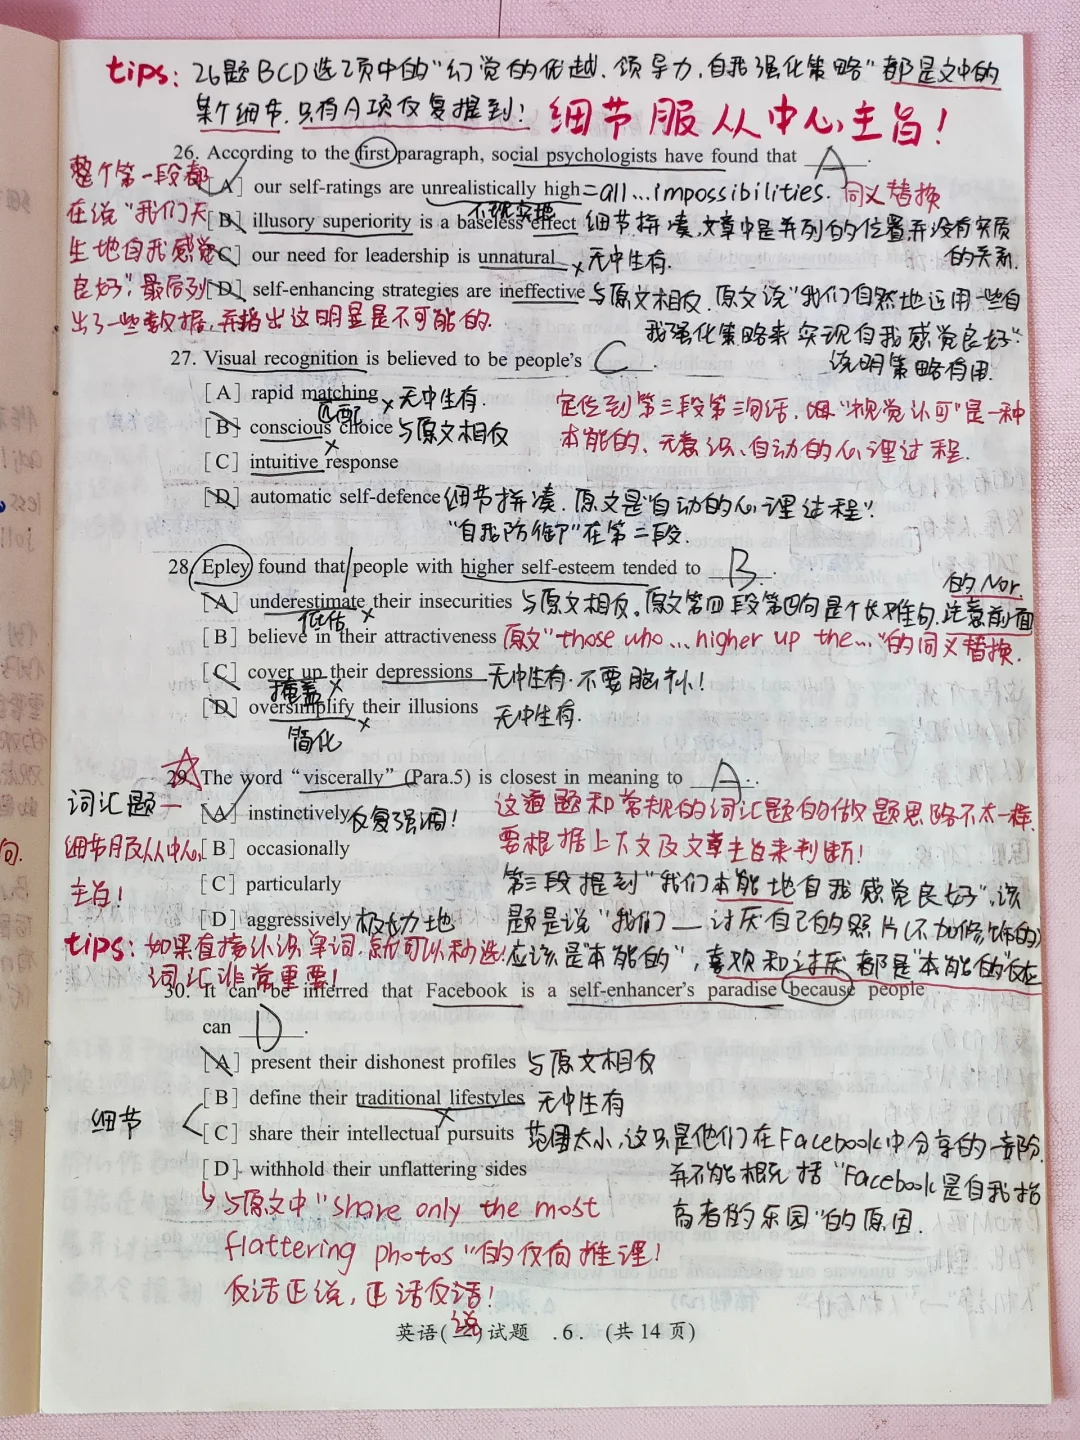 tips: 26题BCD选项中的"幻觉的优越、领导力、自我强化策略"都是文中的
某个细节,只有A项反复提到!细节服从中心主旨!
26. According to the first paragraph, social psychologists have found that A.
整个第一段都在说"我们天生地自我感觉良好",最后列出了一些数据,并指出这明显是不可能的.
[A] our self-ratings are unrealistically high =all...impossibilities. 同义替换
不现实地
[B] illusory superiority is a baseless effect 细节拼凑,文章中是并列的位置,并没有实质的关系.
[C] our need for leadership is unnatural × 无中生有.
[D] self-enhancing strategies are ineffective 与原文相反.原文说"我们自然地运用一些自
我强化策略来实现自我感觉良好".
说明策略有用.
27. Visual recognition is believed to be people's C.
[A] rapid matching × 无中生有.
匹配
[B] conscious choice 与原文相反
×
[C] intuitive response
定位到第三段第三句话,
"视觉认可"是一种
本能的、无意识、自动的心理过程.
[D] automatic self-defence 细节拼凑.原文是"自动的心理过程".
"自我防御"在第二段.
28. Epley found that people with higher self-esteem tended to B.
[A] underestimate their insecurities 与原文相反,原文第四段第四句是个长难句,注意前面的Nor.
低估 ×
[B] believe in their attractiveness 原文"those who...higher up the..."的同义替换.
[C] cover up their depressions 无中生有.不要脑补!
掩盖 ×
[D] oversimplify their illusions 无中生有.
简化 ×
29. The word "viscerally" (Para.5) is closest in meaning to A.
词汇题
细节服从中心
主旨!
[A] instinctively 反复强调!
[B] occasionally
[C] particularly
[D] aggressively 极力地
这道题和常规的词汇题的做题思路不太一样,
要根据上下文及文章主旨来判断!
第三段提到"我们本能地自我感觉良好",该
题是说"我们__讨厌自己的照片(不加修饰的)
应该是"本能的",喜欢和讨厌都是"本能的"反应
tips: 如果直接认识单词,就可以秒选.
词汇非常重要!
30. It can be inferred that Facebook is a self-enhancer's paradise because people
can D.
[A] present their dishonest profiles 与原文相反
细节
[B] define their traditional lifestyles 无中生有
×
[C] share their intellectual pursuits 范围太小,这只是他们在Facebook中分享的一部分,
并不能概括"Facebook是自我抬
高者的乐园"的原因.
[D] withhold their unflattering sides
与原文中"share only the most
flattering photos"的反向推理!
反话正说,正话反说!
英语(二)试题 .6. (共14页)